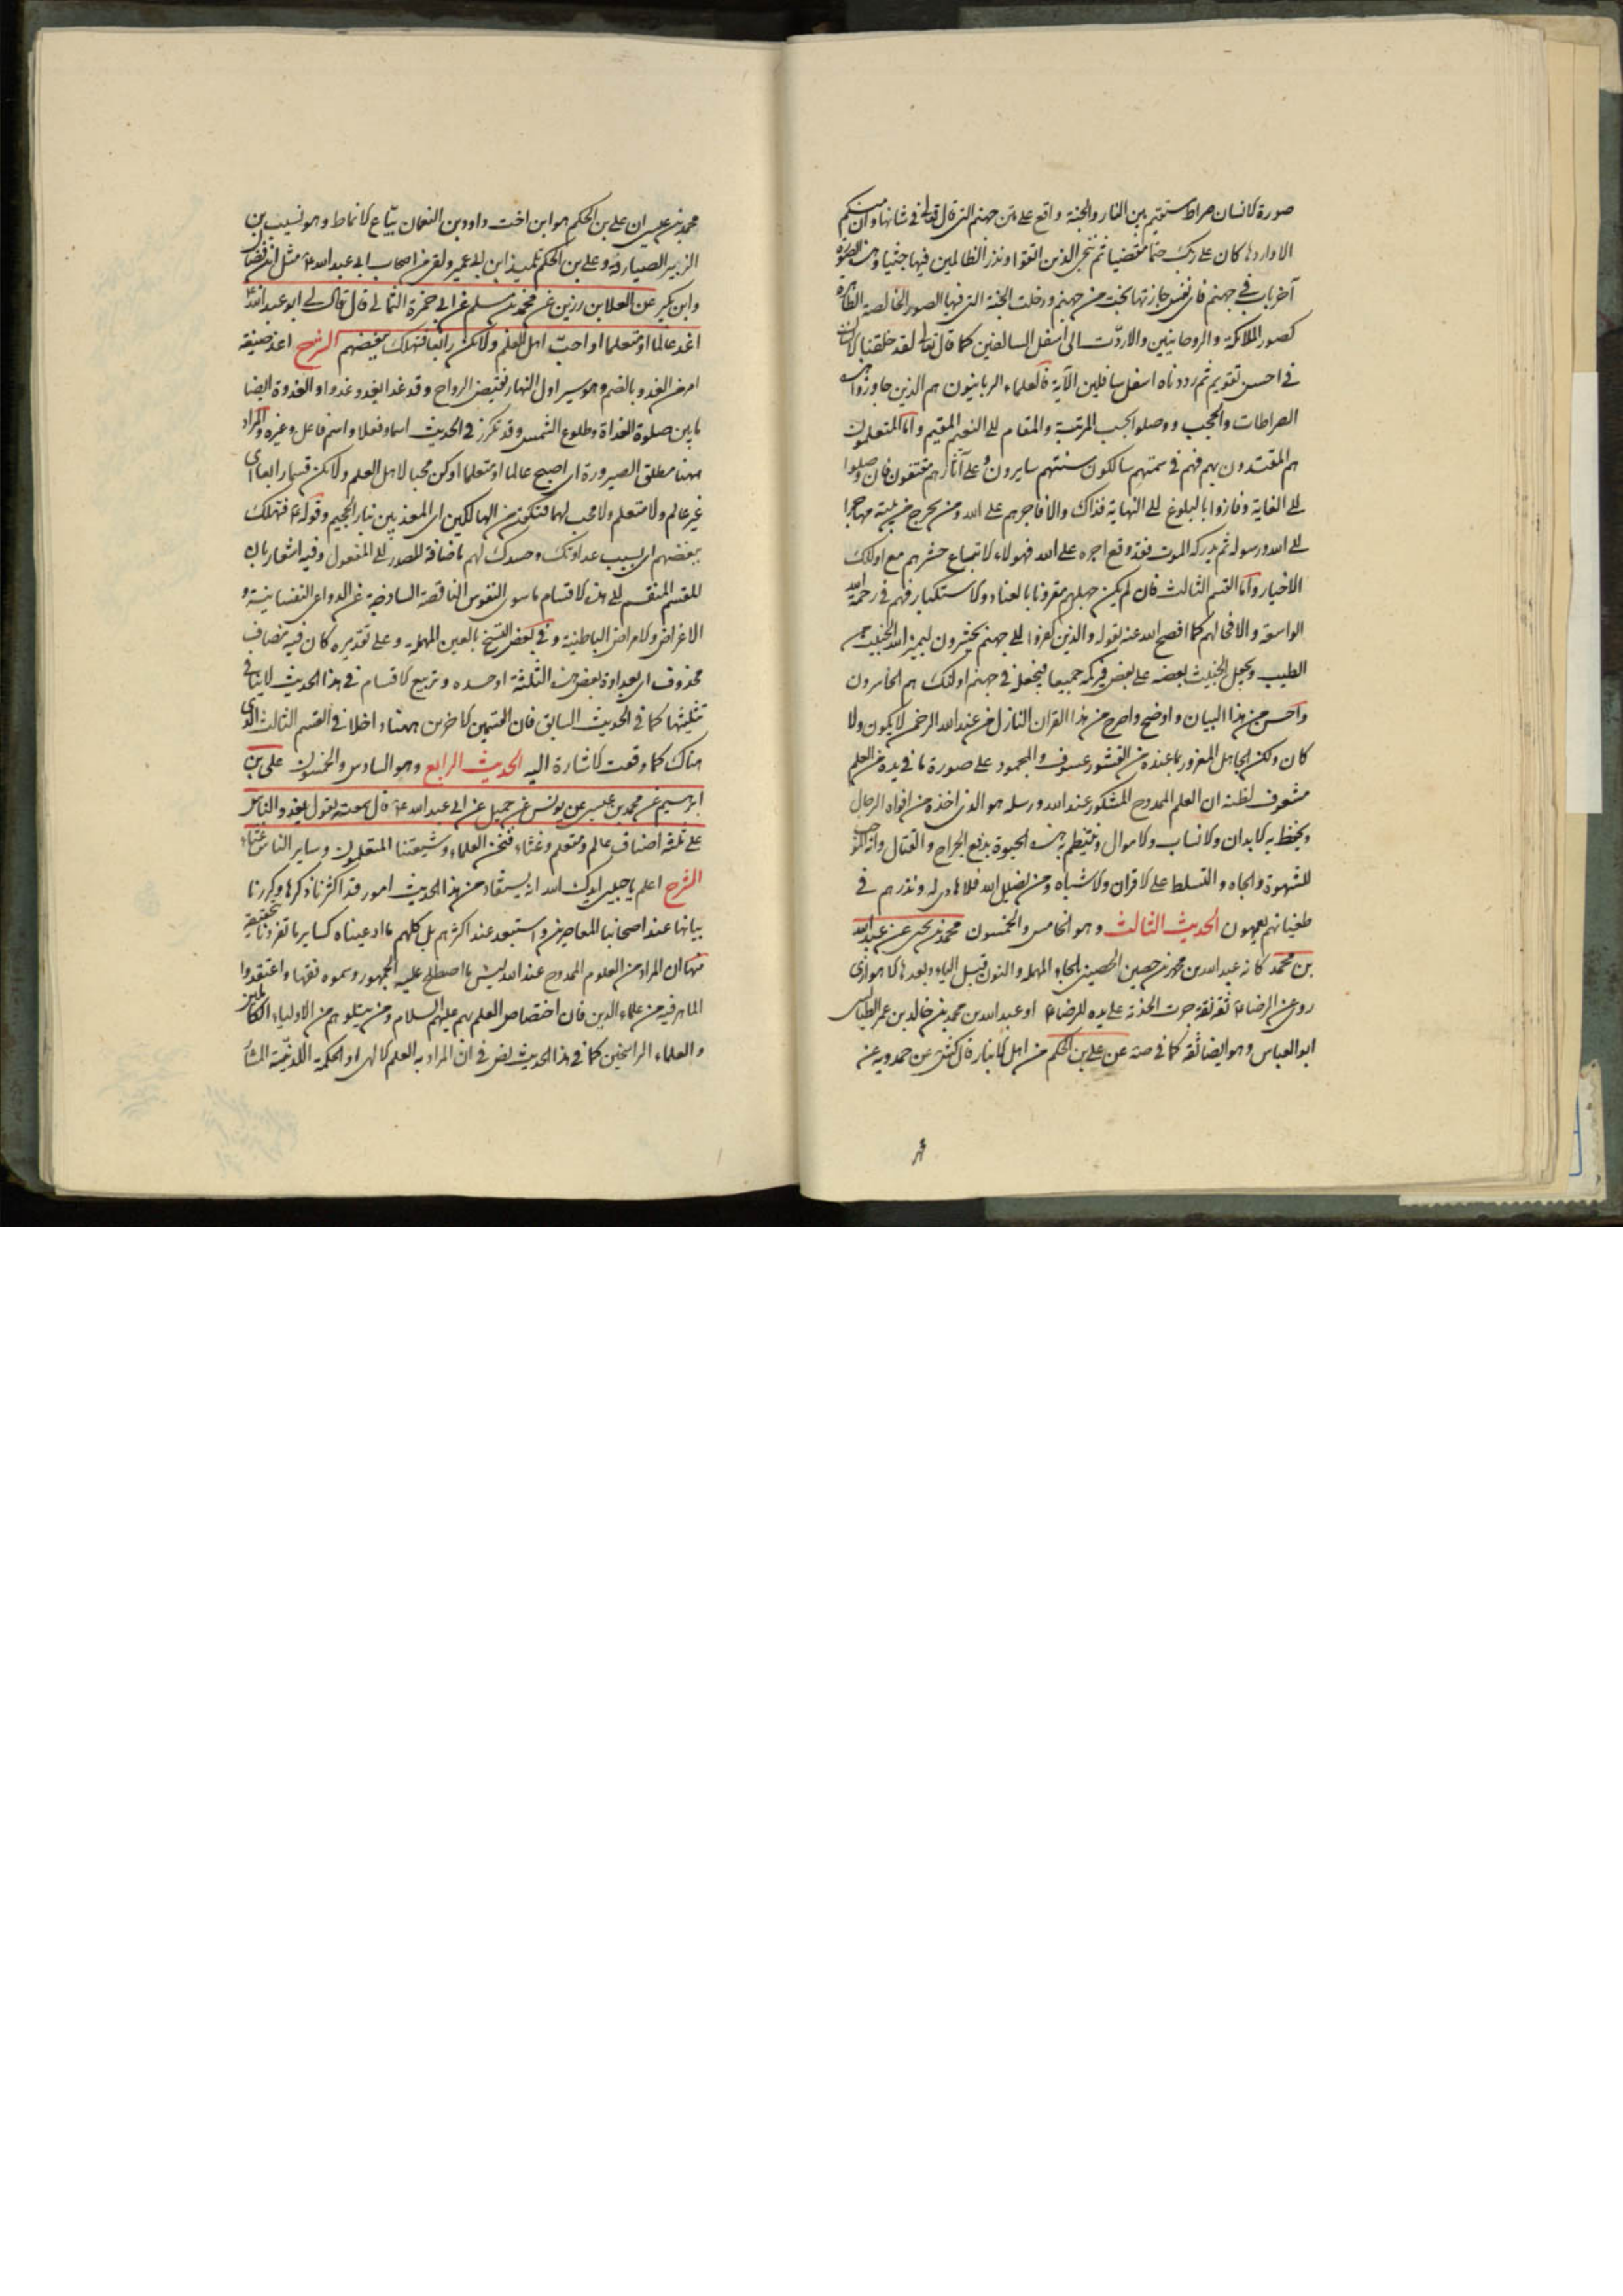 صورة الانسان صراط مستقيم بين النار والجنة واقع على متن جهنم التى قال تعالى فى شانها وان منكم
الا واردها كان على ربك حتما مقضيا ثم ننجى الذين اتقوا ونذر الظالمين فيها جثيا وهذه الصورة
آخر باب فى جهنم فاى نفس جازتها نجت من جهنم ودخلت الجنة التى فيها الصور الخالصة الطاهرة
كصور الملائكة والروحانيين والا ردّت الى اسفل السافلين كما قال تعالى لقد خلقنا الانسان
فى احسن تقويم ثم رددناه اسفل سافلين الآية فالعلماء الربانيون هم الذين جاوزوا هذه
الصراطات والحجب ووصلوا بحسب المرتبة والمقام الى النعيم المقيم واما المتعلمون
هم المقتدون بهم فهم فى سمتهم سالكون سنتهم سايرون وعلى آثارهم مقتفون فان وصلوا
الى الغاية وفازوا بالبلوغ الى النهاية فذاك والا فاجرهم على الله ومن يخرج من بيته مهاجرا
الى الله ورسوله ثم يدركه الموت فقد وقع اجره على الله فهولاء لاتباع حشرهم مع اولئك
الاخيار واما القسم الثالث فان لم يكن جهلهم مقرونا بالعناد والاستكبار فهم فى رحمة الله
الواسعة والا فحالهم كما افصح الله عنه بقوله والذين كفروا الى جهنم يحشرون ليميز الله الخبيث من
الطيب ويجعل الخبيث بعضه على بعض فيركمه جميعا فيجعله فى جهنم اولئك هم الخاسرون
واحسن من هذا البيان واوضح واصرح من هذا القران النازل من عند الله الرحمن لا يكون ولا
كان ولكن الجاهل المغرور بما عنده من القشور عسوف والمجمود على صورة ما فى يده من العلم
مشعوف لظنه ان العلم الممدوح المشكور عند الله ورسله هو الذى اخذه من افواه الرجال
ويحفظ به الابدان والانساب والاموال وينتظم به هذه الحيوة بدفع الجراح والقتال وانه
للشهوة والجاه والتسلط على الاقران والاشباه ومن يضلل الله فلا هادى له ونذرهم فى
طغيانهم يعمهون الحديث الثالث وهو الخامس والخمسون محمد بن يحيى عن عبد الله
بن محمد كانه عبد الله بن محمد بن حصين الحصينى بالحاء المهملة والنون قبل الياء وبعدها الاهوازى
روى عن الرضا ع ثقة ثقة جرت الخدمة على يده للرضا ع او عبد الله بن محمد بن خالد بن عمر الطيالسى
ابو العباس وهو ايضا ثقة كما فى صه عن على بن الحكم من اهل الانبار قال الكشى عن حمدويه عن
محمد بن عيسى ان على بن الحكم هو ابن اخت داود بن النعمان بيّاع الانماط وهو نسيب بنى
الزبير الصيارفه وعلى بن الحكم تلميذ ابن ابى عمير ولقى من اصحاب ابى عبد الله ع مثل ابن فضال
وابن بكير عن العلا بن رزين عن محمد بن مسلم عن ابى حمزة الثمالى قال قال لى ابو عبد الله ع
اغد عالما او متعلما او احب اهل العلم ولا تكن رابعا فتهلك ببغضهم الشرح اغد صيغة
امر من الغدو بالضم وهو سير اول النهار نقيض الرواح وقد غدا يغدو غدوا والغدوة ايضا
ما بين صلوة الغداة وطلوع الشمس وقد تكرر فى الحديث اسما وفعلا واسم فاعل وغيره والمراد
ههنا مطلق الصيرورة اى اصبح عالما او متعلما او كن محبا لاهل العلم ولا تكن قسما رابعا اى
غير عالم ولا متعلم ولا محب لهما فتكون من الهالكين اى المعذبين بنار الجحيم وقوله ع فتهلك
ببغضهم اى بسبب عداوتك وحسدك لهم باضافة المصدر الى المفعول وفيه اشعار بان
المقسم المنقسم الى هذه الاقسام ما سوى النفوس الناقصة الساذجة عن الدواعى النفسانية و
الاغراض والامراض الباطنية وفى بعض النسخ بالعين المهملة وعلى تقديره كان فيه مضاف
محذوف اى بعداوة بعض هذه الثلثة او حسده وتربيع الاقسام فى هذا الحديث لا ينافى
تثليثها كما فى الحديث السابق فان القسمين الاخرين ههنا داخلا فى القسم الثالث الذى
هناك كما وقعت الاشارة اليه الحديث الرابع وهو السادس والخمسون على بن
ابرهيم عن محمد بن عيسى عن يونس عن جميل عن ابى عبد الله ع قال سمعته يقول يغدو الناس
على ثلثة اصناف عالم ومتعلم وغثاء فنحن العلماء وشيعتنا المتعلمون وساير الناس غثاء
الشرح اعلم يا حبيبى ايدك الله انه يستفاد من هذا الحديث امور قد اكثرنا ذكرها وكررنا
بيانها عند اصحابنا المعاصرين واستبعد عند اكثرهم بل كلهم ما ادعيناه كساير ما تفردنا بتحقيقه
منها ان المراد من العلوم الممدوح عند الله ليس ما اصطلح عليه الجمهور وسموه فقها واعتقدوا
الماهر فيه من علماء الدين فان اختصاص العلم بهم عليهم السلام ومن يتلوهم من الاولياء الكاملين
والعلماء الراسخين كما فى هذا الحديث نص فى ان المراد به العلم الالهى او الحكمة اللدنية المشار